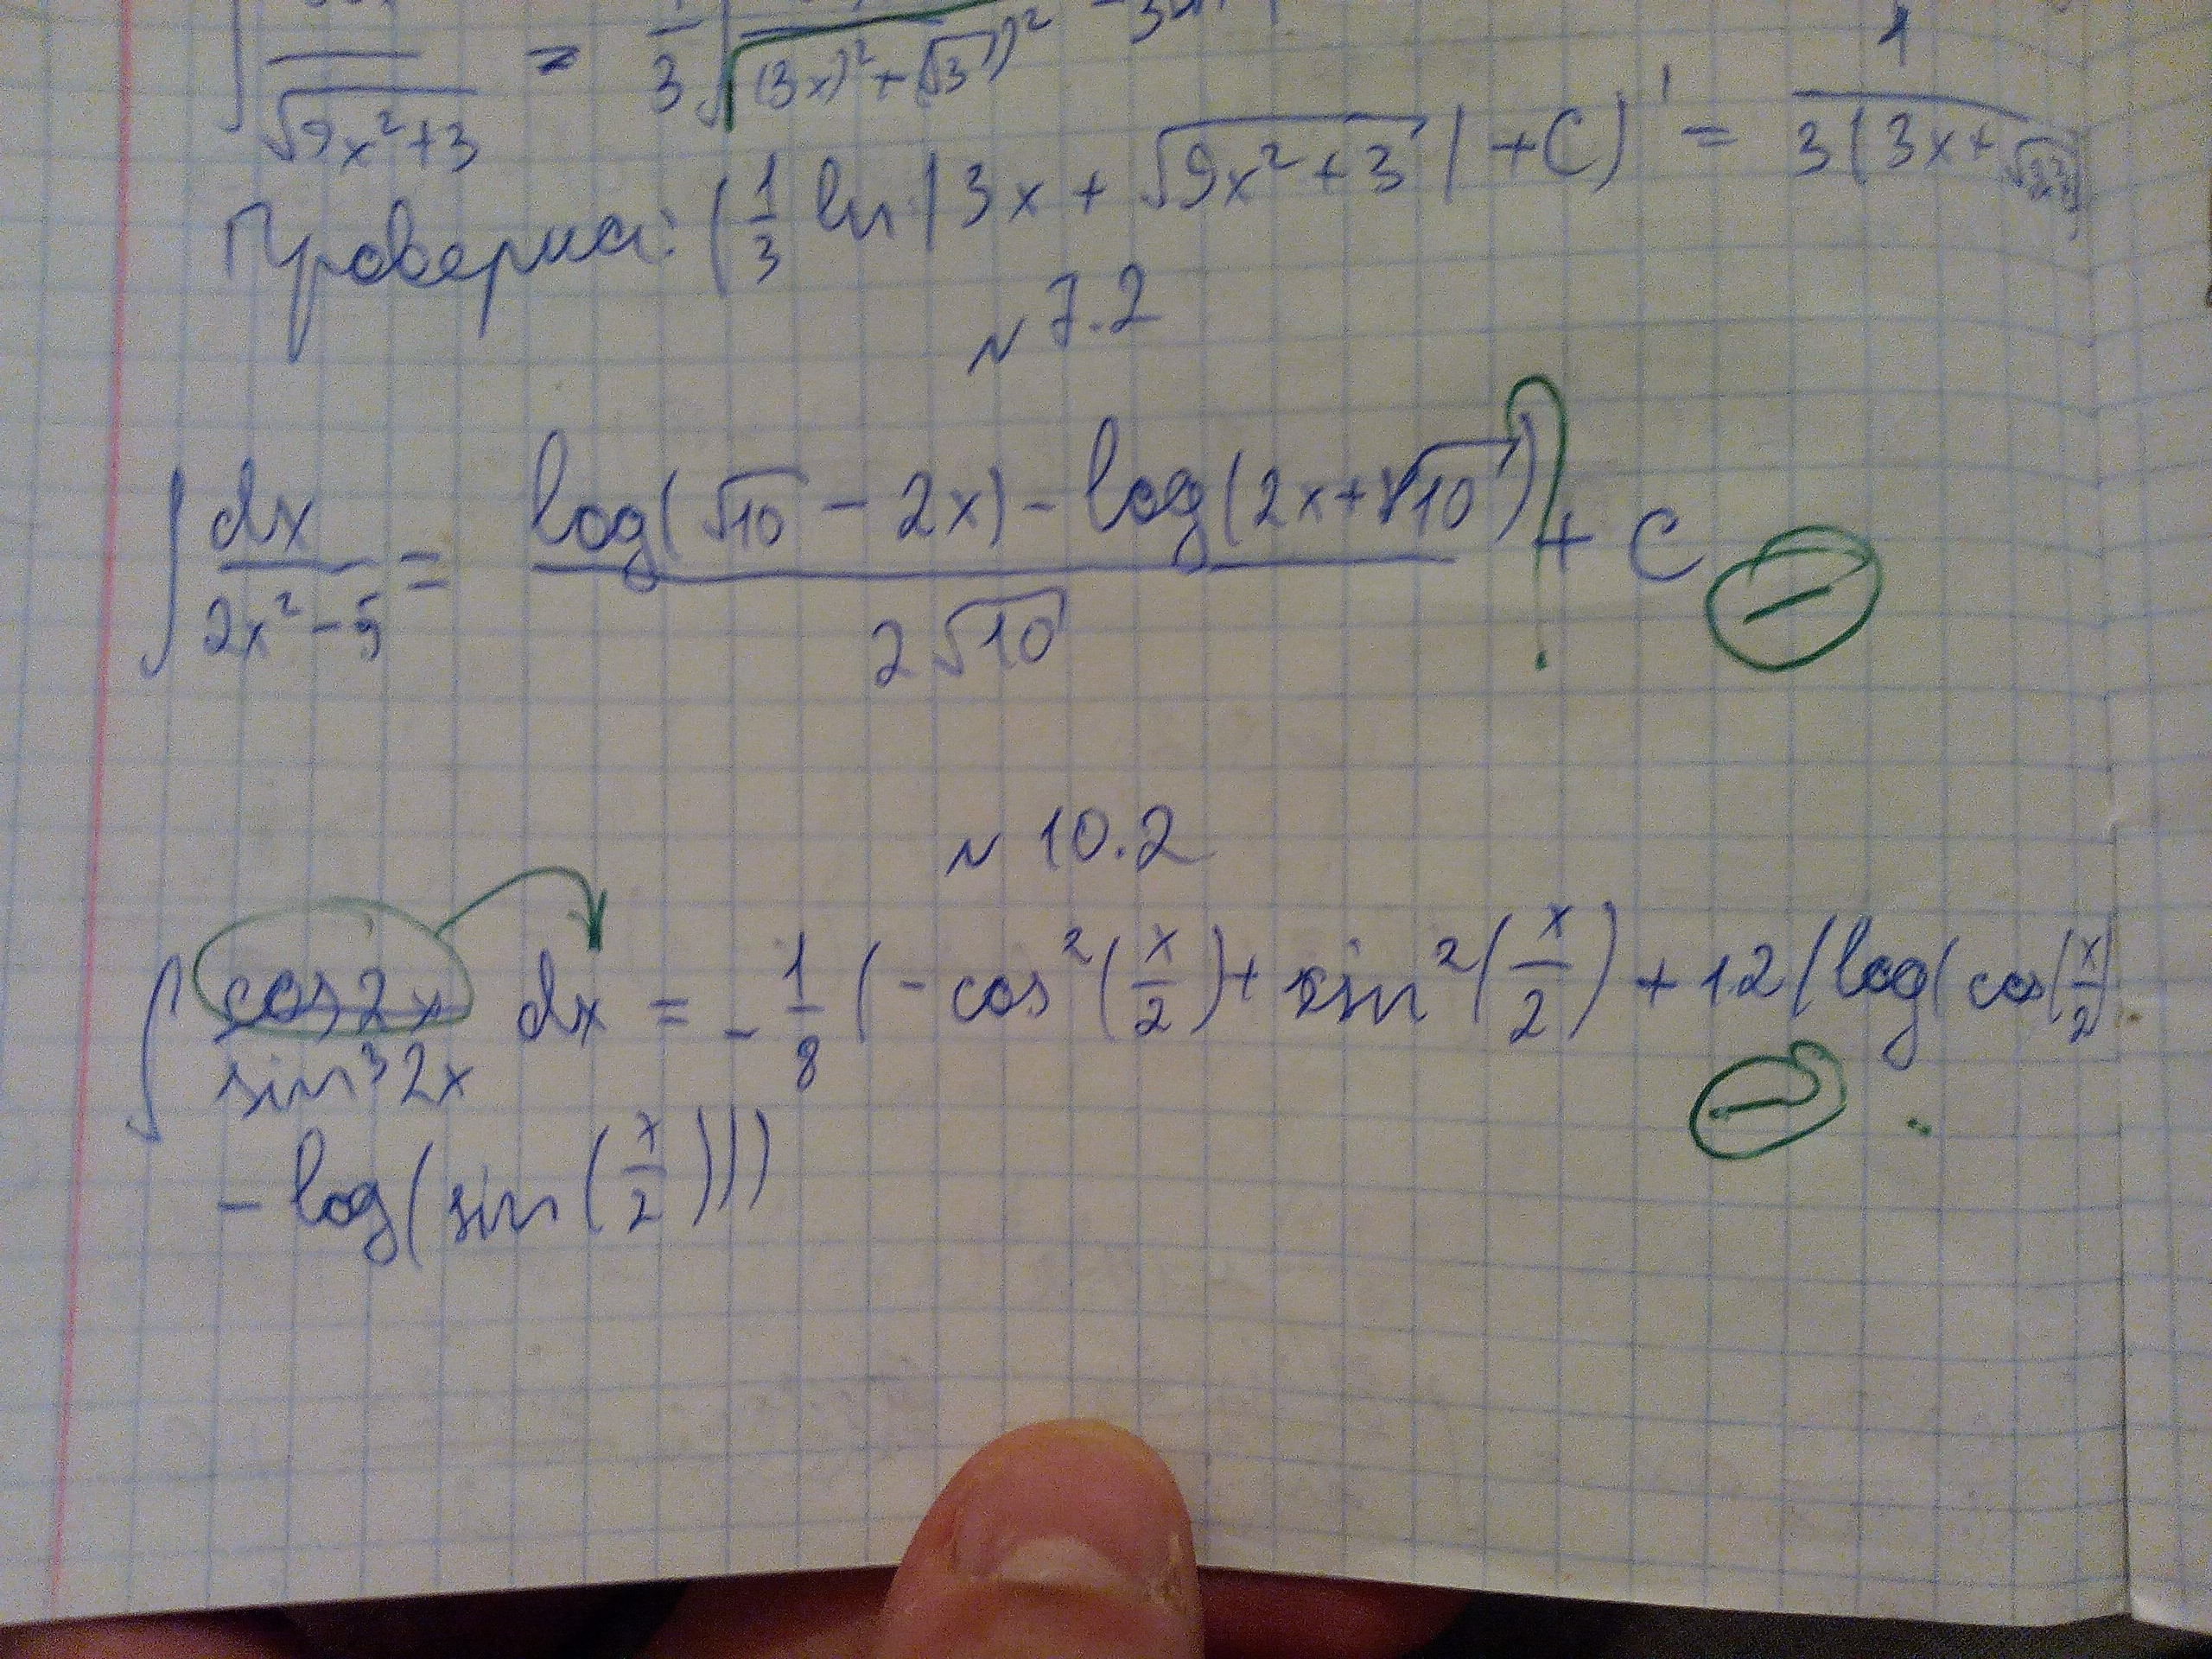 ∫ / √(9x²+3) = 1/3 √((3x)²+(√3))²
Проверка: (1/3 ln|3x + √(9x²+3)| + C)' = 1/(3(3x+√
№ 7.2
∫ dx/(2x²-5) = (log(√10 - 2x) - log(2x+√10))/(2√10) + C
№ 10.2
∫ cos2x/sin³2x dx = -1/8 (-cos²(x/2) + sin²(x/2) + 12(log(cos(x/2)
- log(sin(x/2)))